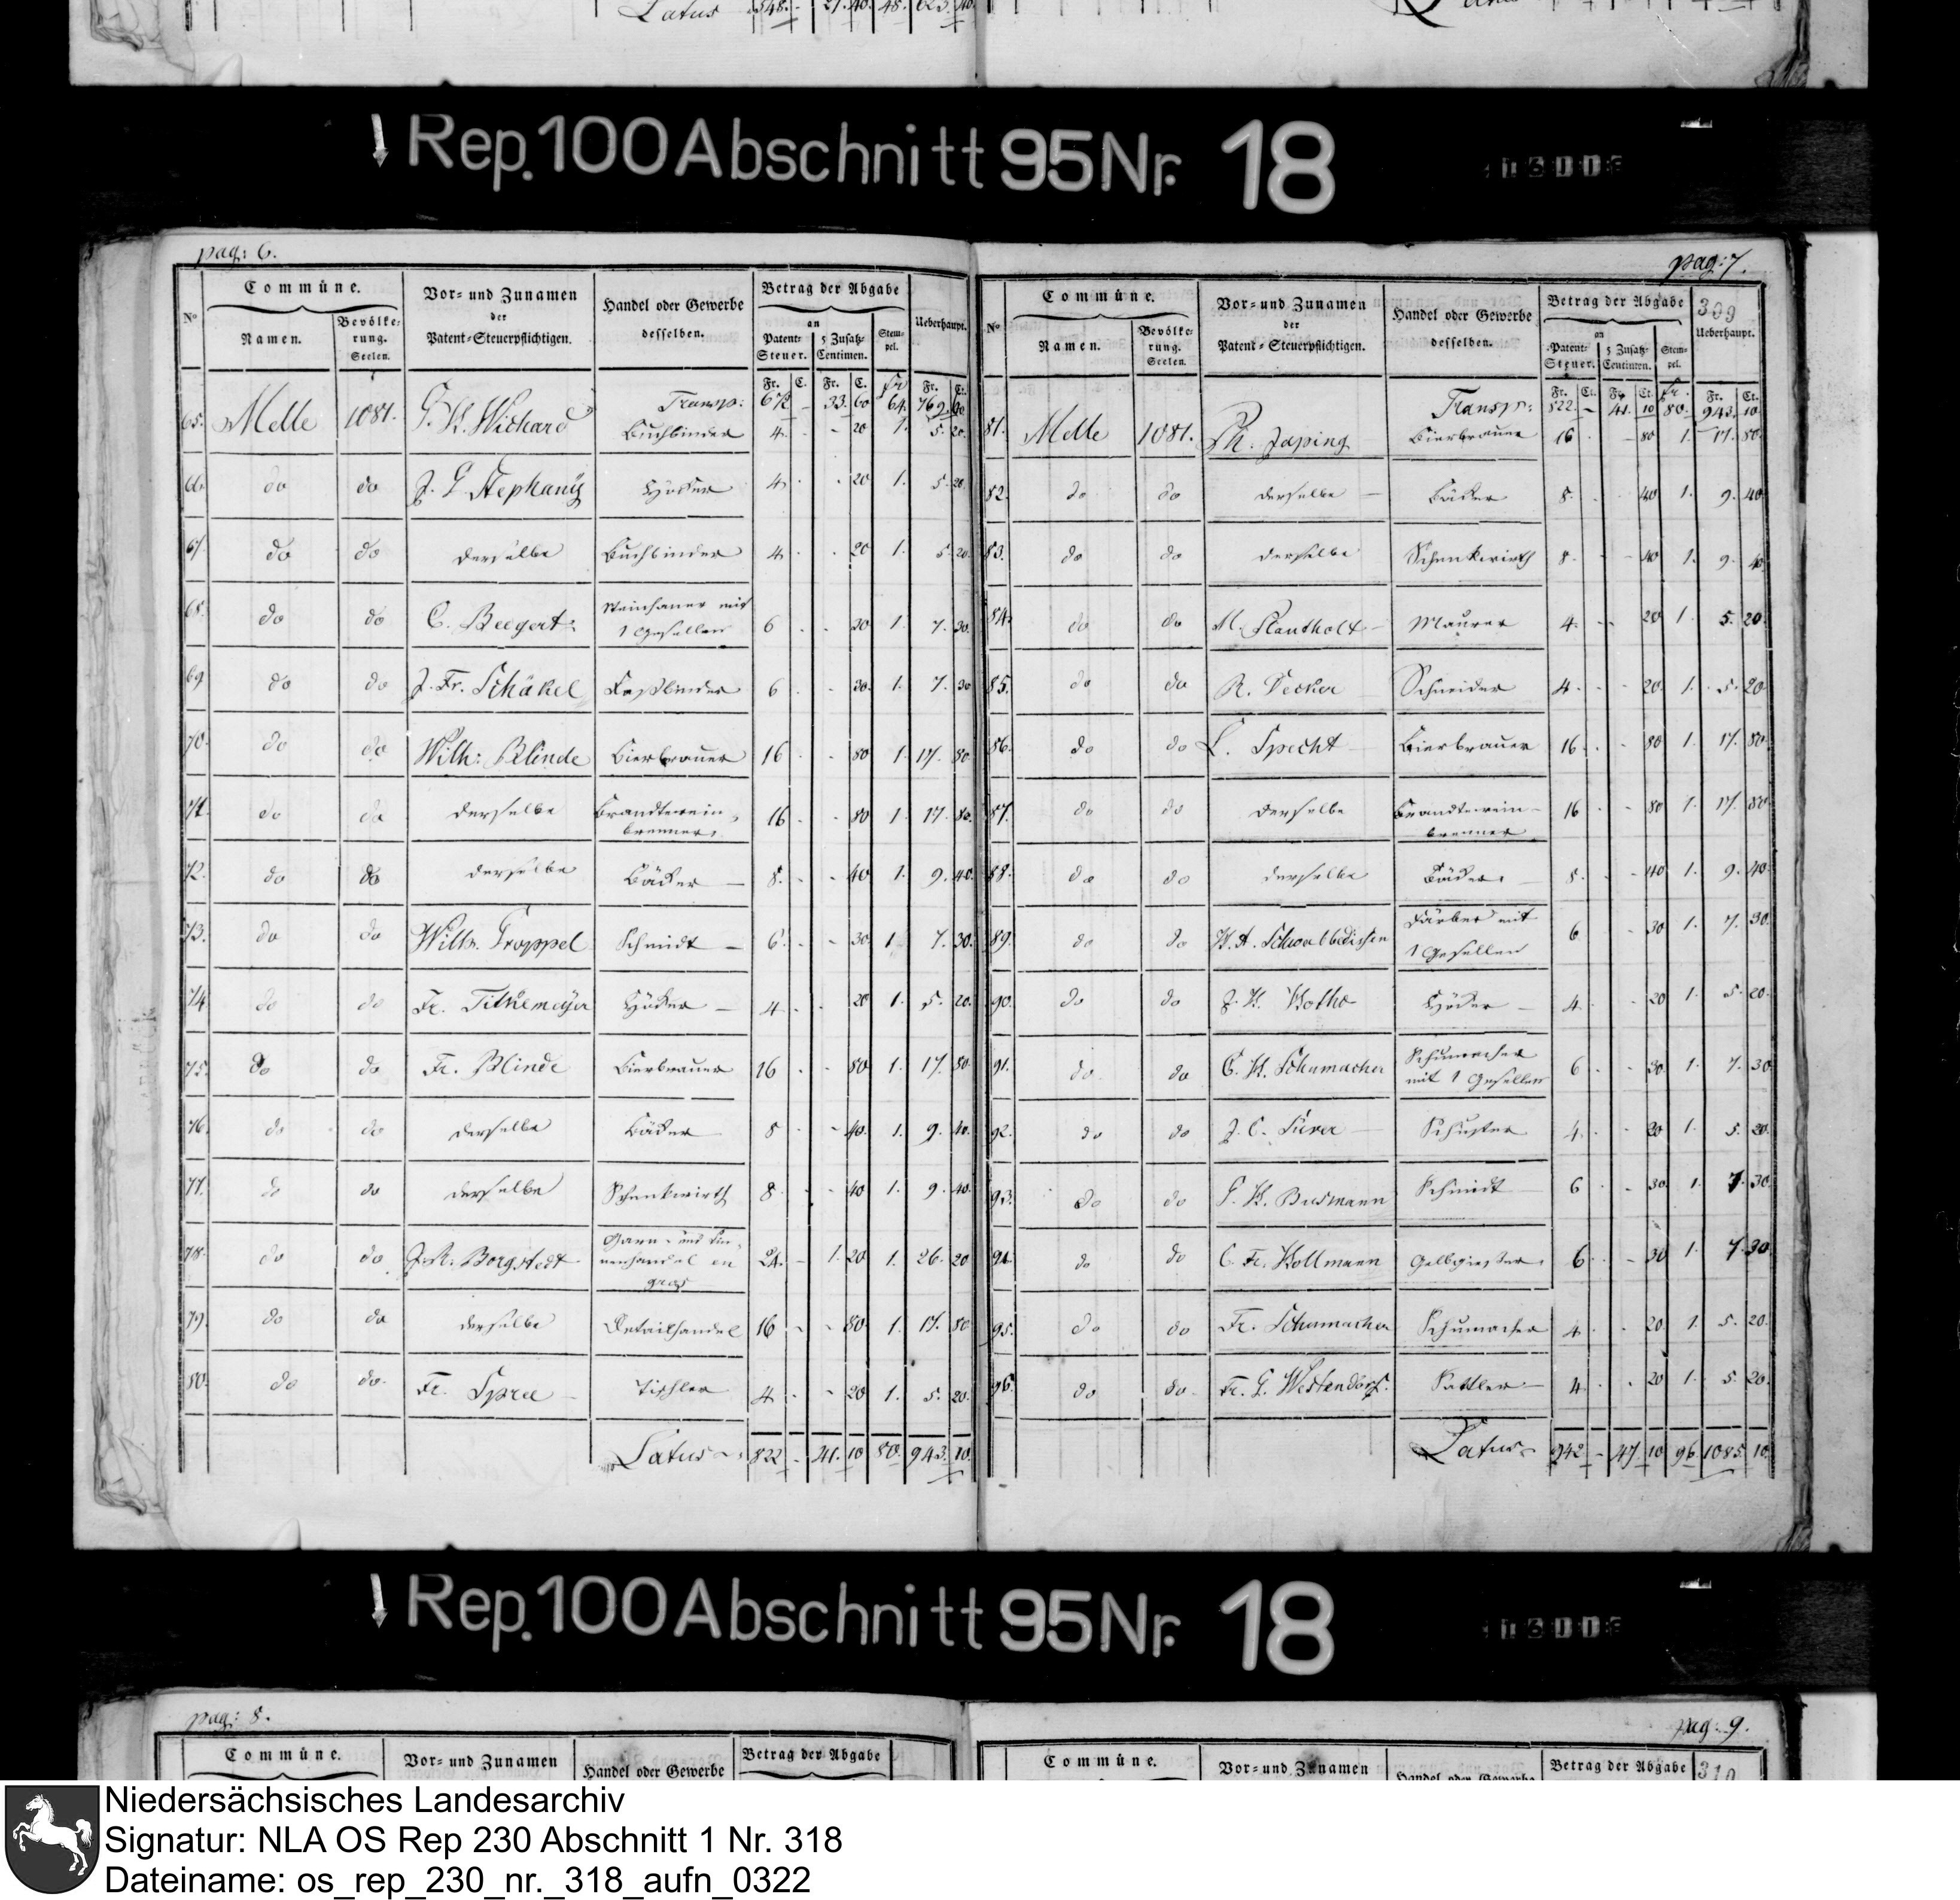 Latus 548. - 27. 40. 48. 623. 40.
↓ Rep. 100 Abschnitt 95 Nr. 18
pag: 6.
No
Commüne.
Namen.
Bevölke-
rung.
Seelen.
Vor- und Zunamen
der
Patent-Steuerpflichtigen.
Handel oder Gewerbe
desselben.
Betrag der Abgabe
an
Patent-
Steuer.
5 Zusatz-
Centimen.
Stem-
pel.
Ueberhaupt.
Fr. C. Fr. C. Fr Fr. Ct.
Transp: 672 - 33. 60 64. 769. 60
65. Melle 1081. G. H. Wichard Buchbinder 4. - - 20 1. 5. 20.
66. do do J. G. Stephany Höcker 4. - 20 1. 5. 20.
67. do do derselbe Buchbinder 4. - 20 1. 5. 20.
68. do do C. Beegert Steinhauer mit
1 Gesellen 6 - - 30. 1. 7. 30.
69 do do J. Fr. Schäkel Faßbinder 6 - 30. 1. 7. 30
70. do do Wilh: Blinde Bierbrauer 16 - - 80 1. 17. 80.
71. do do derselbe Brandtwein-
brenner. 16 - - 80 1. 17. 80.
72. do do derselbe Bäcker — 8. - - 40 1. 9. 40.
73. do do Wilh. Troppel Schmidt — 6. - - 30. 1 7. 30.
74 do do Fr. Tithemeyer Höcker — 4. - - 20 1. 5. 20.
75. do do Fr. Blinde Bierbrauer 16 - - 80 1. 17. 80.
76. do do derselbe Bäcker 8 - - 40. 1. 9. 40.
77. do do derselbe Schenkwirth 8. - - 40 1. 9. 40.
78. do do J. R. Borgstedt Garn- und Lin-
nenhandel en
gros 24. - 1. 20 1. 26. 20
79. do do derselbe Detailhandel 16 - - 80. 1. 17. 80
80. do do. Fr. Spree — Tischler 4 - - 20 1. 5. 20.
Latus 822 - 41. 10 80. 943. 10.
pag: 7.
309
No
Commüne.
Namen.
Bevölke-
rung.
Seelen.
Vor- und Zunamen
der
Patent-Steuerpflichtigen.
Handel oder Gewerbe
desselben.
Betrag der Abgabe
an
Patent-
Steuer.
5 Zusatz-
Centimen.
Stem-
pel.
Ueberhaupt.
Fr. Ct. Fr. Ct. Fr. Fr. Ct.
Transp: 822. - 41. 10 80. 943. 10
81. Melle 1081. Ph. Japing Bierbrauer 16 - - 80 1. 17. 80.
82. do do derselbe — Bäcker 8. - - 40 1. 9. 40
83. do do derselbe Schenkwirth 8. - - 40 1. 9. 40
84. do do M. Plantholt — Maurer 4. - - 20 1. 5. 20
85. do do R. Decker — Schneider 4. - - 20. 1. 5. 20
86. do do L. Specht — Bierbrauer 16. - - 80 1. 17. 80
87. do do derselbe Brandtwein-
brenner 16 - - 80 1. 17. 80
88. do do derselbe Bäcker. — 8. - - 40 1. 9. 40.
89. do do H. A. Schwabbedissen Färber mit
1 Gesellen 6 - - 30 1. 7. 30.
90. do do J. H. Bothe Höcker — 4. - - 20 1. 5. 20.
91. do do C. H. Schumacher Schumacher
mit 1 Gesellen 6 - - 30. 1. 7. 30
92. do do J. C. Siever — Schuster 4. - - 20 1. 5. 20
93. do do G. H. Busmann Schmidt — 6 - - 30. 1. 7. 30
94. do do C. Fr. Kollmann Gelbgießer. 6. - - 30 1. 7. 30.
95. do do Fr. Schumacher Schumacher 4. - - 20. 1. 5. 20.
96. do do. Fr. G. Westendorf. Sattler — 4. - - 20 1. 5. 20.
Latus 942 - 47. 10 96. 1085. 10.
↓ Rep. 100 Abschnitt 95 Nr. 18
pag: 8.
Commüne.
Vor- und Zunamen
Handel oder Gewerbe
Betrag der Abgabe
pag: 9.
Commüne.
Vor- und Zunamen
Handel oder Gewerbe
Betrag der Abgabe
310
Niedersächsisches Landesarchiv
Signatur: NLA OS Rep 230 Abschnitt 1 Nr. 318
Dateiname: os_rep_230_nr._318_aufn_0322